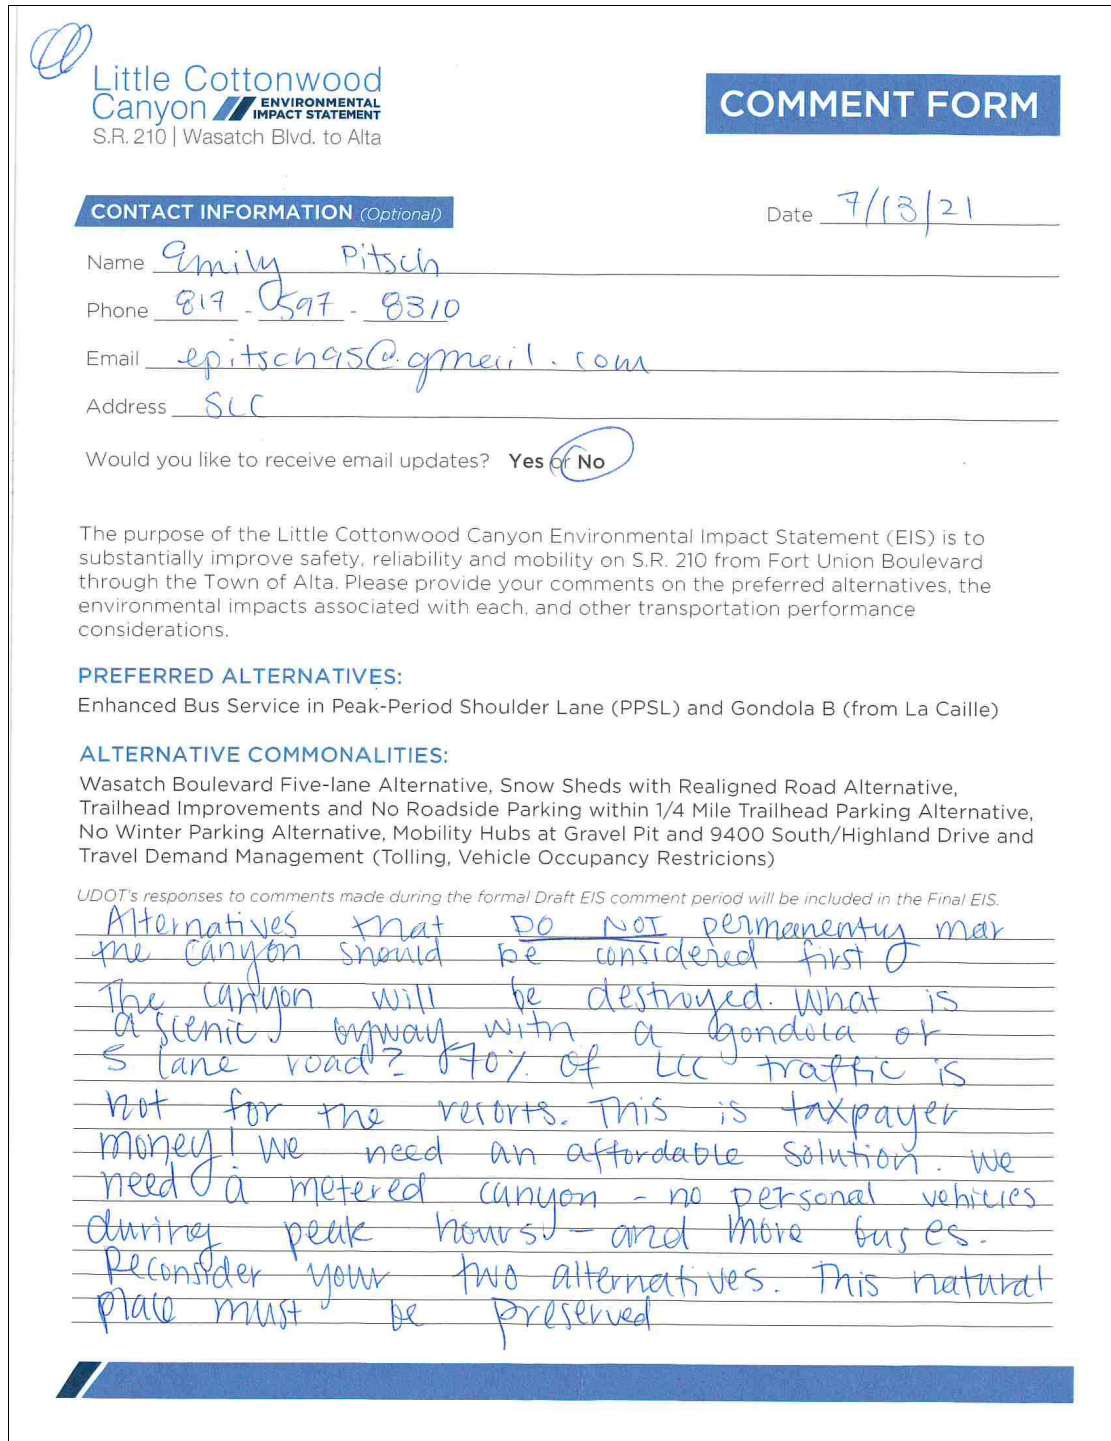 Little Cottonwood
Canyon ENVIRONMENTAL
IMPACT STATEMENT
S.R. 210 | Wasatch Blvd. to Alta
COMMENT FORM
CONTACT INFORMATION (Optional)
Date 7/13/21
Name Emily Pitsch
Phone 817 - 597 - 8310
Email epitsch95@gmail.com
Address SLC
Would you like to receive email updates? Yes or No
The purpose of the Little Cottonwood Canyon Environmental Impact Statement (EIS) is to
substantially improve safety, reliability and mobility on S.R. 210 from Fort Union Boulevard
through the Town of Alta. Please provide your comments on the preferred alternatives, the
environmental impacts associated with each, and other transportation performance
considerations.
PREFERRED ALTERNATIVES:
Enhanced Bus Service in Peak-Period Shoulder Lane (PPSL) and Gondola B (from La Caille)
ALTERNATIVE COMMONALITIES:
Wasatch Boulevard Five-lane Alternative, Snow Sheds with Realigned Road Alternative,
Trailhead Improvements and No Roadside Parking within 1/4 Mile Trailhead Parking Alternative,
No Winter Parking Alternative, Mobility Hubs at Gravel Pit and 9400 South/Highland Drive and
Travel Demand Management (Tolling, Vehicle Occupancy Restricions)
UDOT's responses to comments made during the formal Draft EIS comment period will be included in the Final EIS.
Alternatives that DO NOT permanenty mar
the canyon should be considered first
The canyon will be destroyed. What is
a scenic byway with a gondola or
5 lane road? 70% of LCC traffic is
not for the resorts. This is taxpayer
money! We need an affordable solution. We
need a metered canyon - no personal vehicles
during peak hours - and more buses.
Reconsider your two alternatives. This natural
place must be preserved